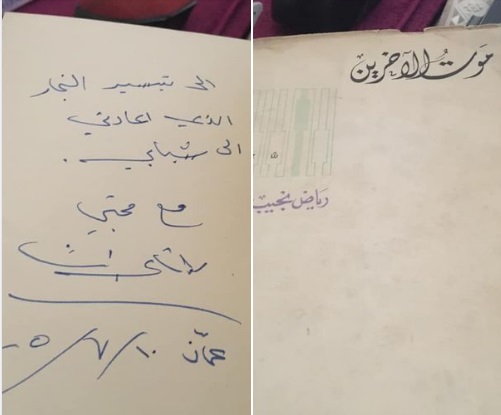 الى تيسير النجار
الذي اعادني
الى شبابي .
مع محبتي
عمّان
موت الآخرين
رياض نجيب